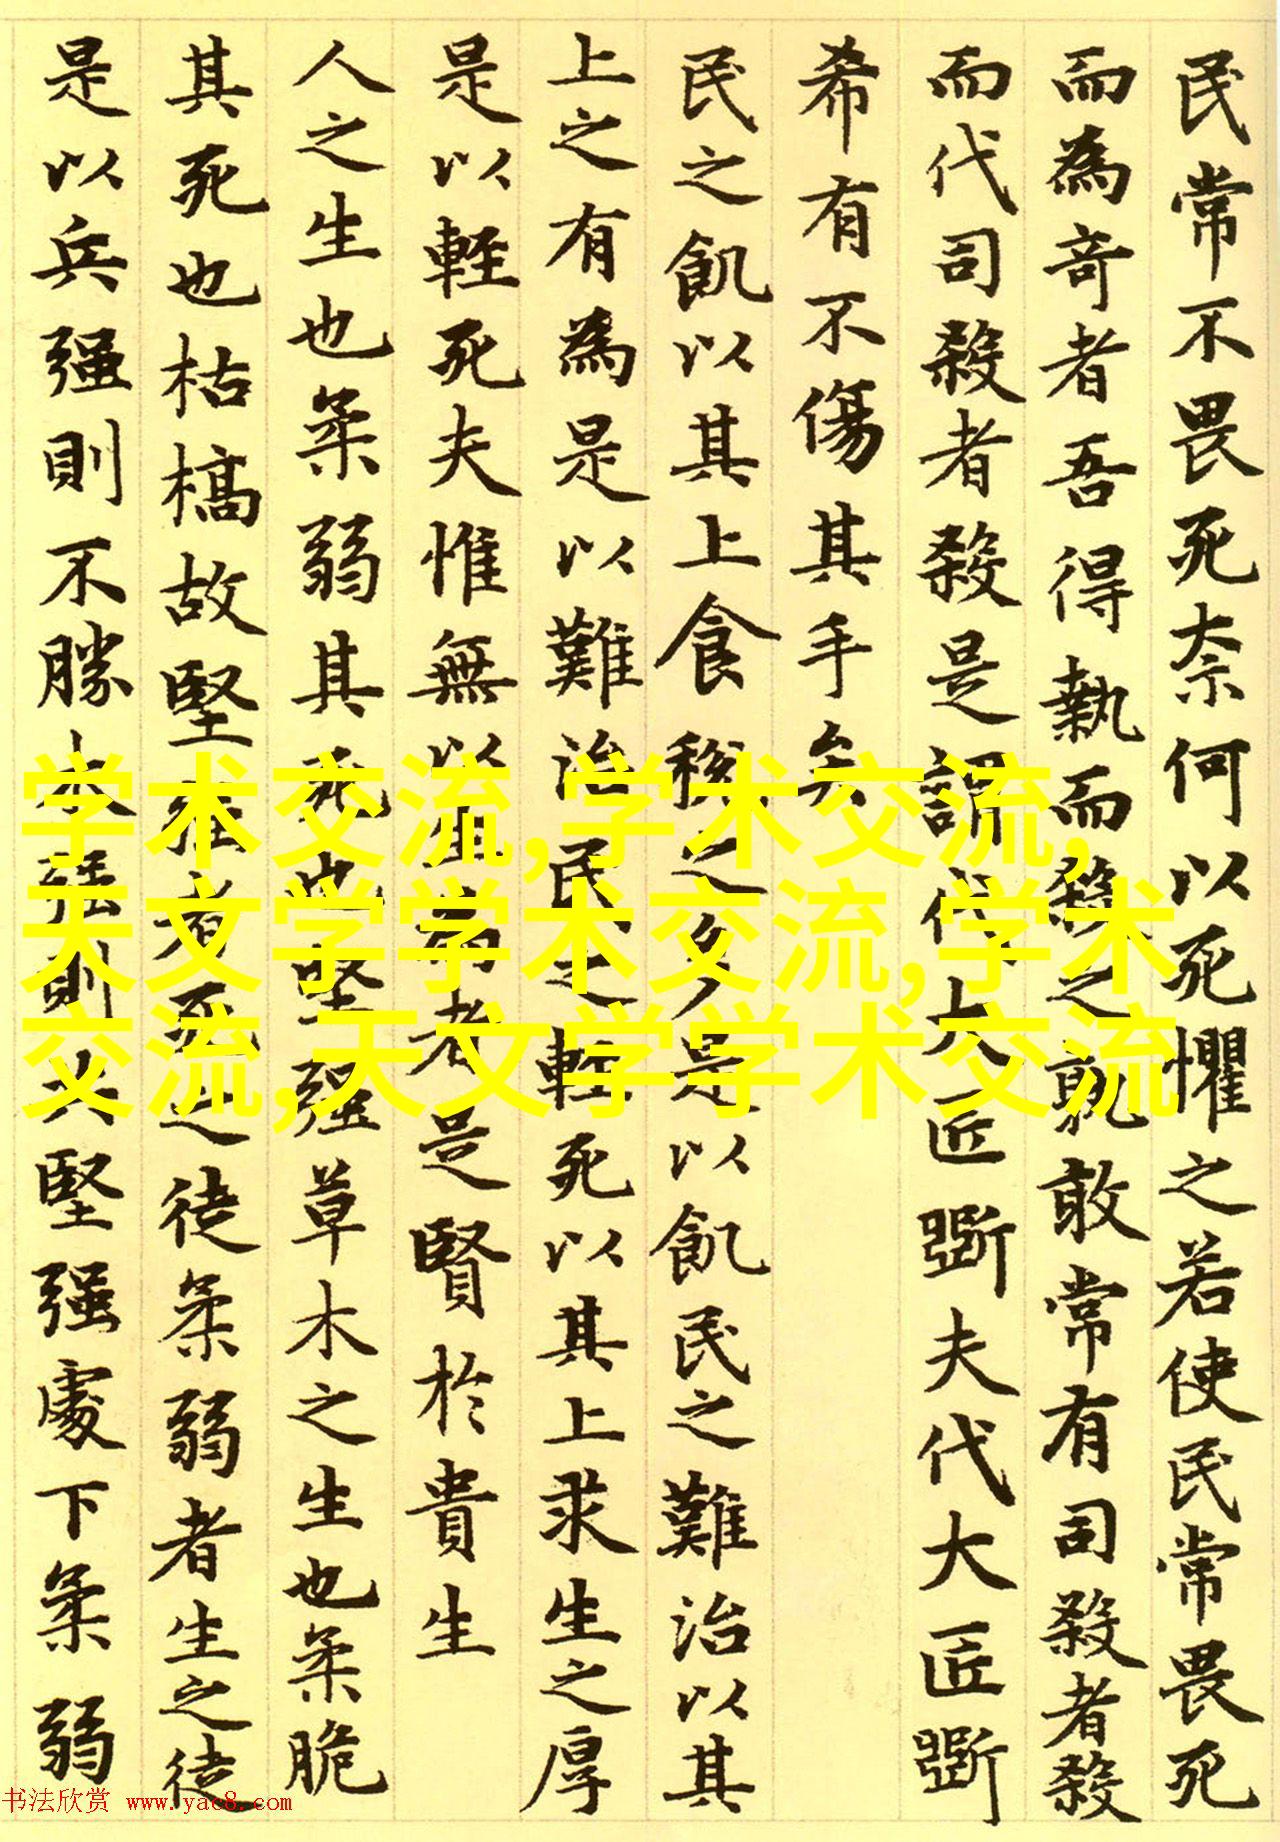 民常不畏死奈何以死懼之若使民常畏死
而為奇者吾得執而殺之孰敢常有司殺者殺
而代司殺者殺是謂代大匠斲夫代大匠斲
希有不傷其手矣
民之飢以其上食稅之多是以飢民之難治以其
上之有為是以難治民之輕死以其上求生之厚
是以輕死夫惟無以生為者是賢於貴生
人之生也柔弱其死也堅强草木之生也柔脆
其死也枯槁故堅强者死之徒柔弱者生之徒
是以兵强則不勝木强則共堅强處下柔弱
学术交流,学术交流,
天文学学术交流,学术
交流,天文学学术交流
书法欣赏 www.yac8.com